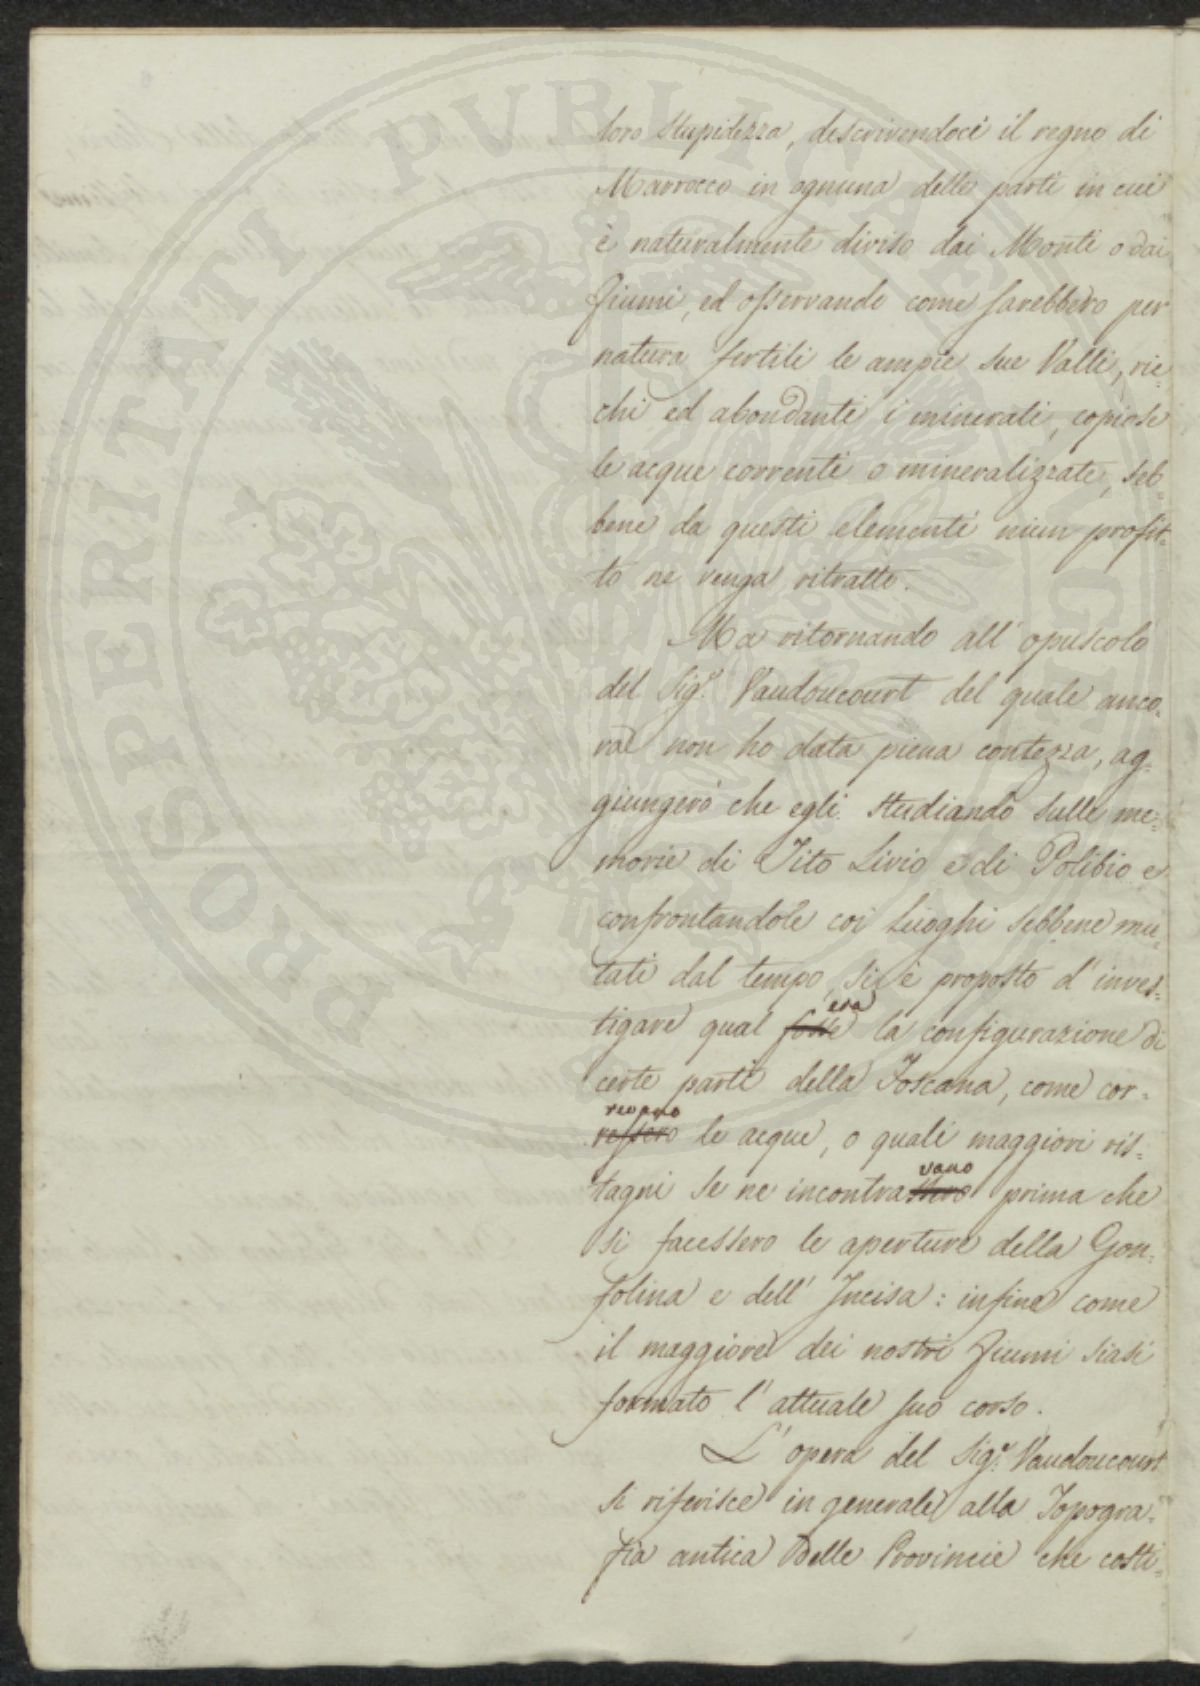 loro stupidezza, descrivendoci il regno di
Marrocco in ognuna delle parti in cui
è naturalmente diviso dai Monti o dai
fiumi, ed osservando come sarebbero per
natura fertili le ampie sue Valli, ric=
chi ed abondanti i minerali, copiose
le acque correnti o mineralizzate, seb=
bene da questi elementi niun profit=
to ne venga ritratto.
Ma ritornando all' opuscolo
del Sig.r Vaudoncourt del quale anco=
ra non ho data piena contezza, ag=
giungerò che egli studiando sulle me=
morie di Tito Livio e di Polibio e
confrontandole coi luoghi sebbene mu=
tati dal tempo, si è proposto d' inves=
era
tigare qual fosse la configurazione di
certe parti della Toscana, come cor=
revano
ressero le acque, o quali maggiori ris=
vano
tagni se ne incontrassero prima che
si facessero le aperture della Gon=
folina e dell' Incisa: infine come
il maggiore dei nostri fiumi siasi
formato l' attuale suo corso.
L' opera del Sig.r Vaudoncourt
si riferisce in generale alla Topogra=
fia antica delle Provincie che costi=
PROSPERITATI PUBLICAE AUGENDAE